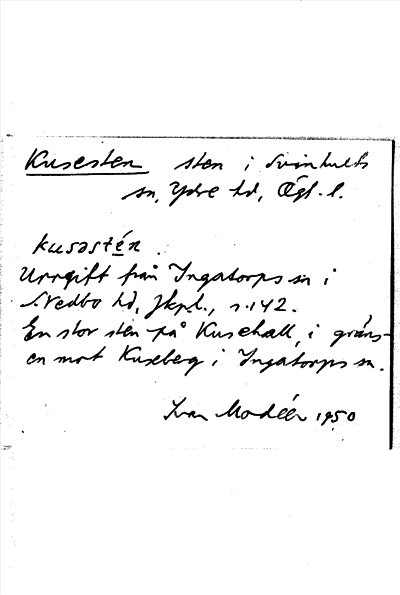 Kusesten sten i Svinhults
sn, Ydre hd, Ögl. l.
kusəstén.
Uppgift från Ingatorps sn i
S. Vedbo hd, Jkp. l., s. 142.
En stor sten på Kusehall, i gräns-
en mot Kuseberg i Ingatorps sn.
Ivar Modéer 1950